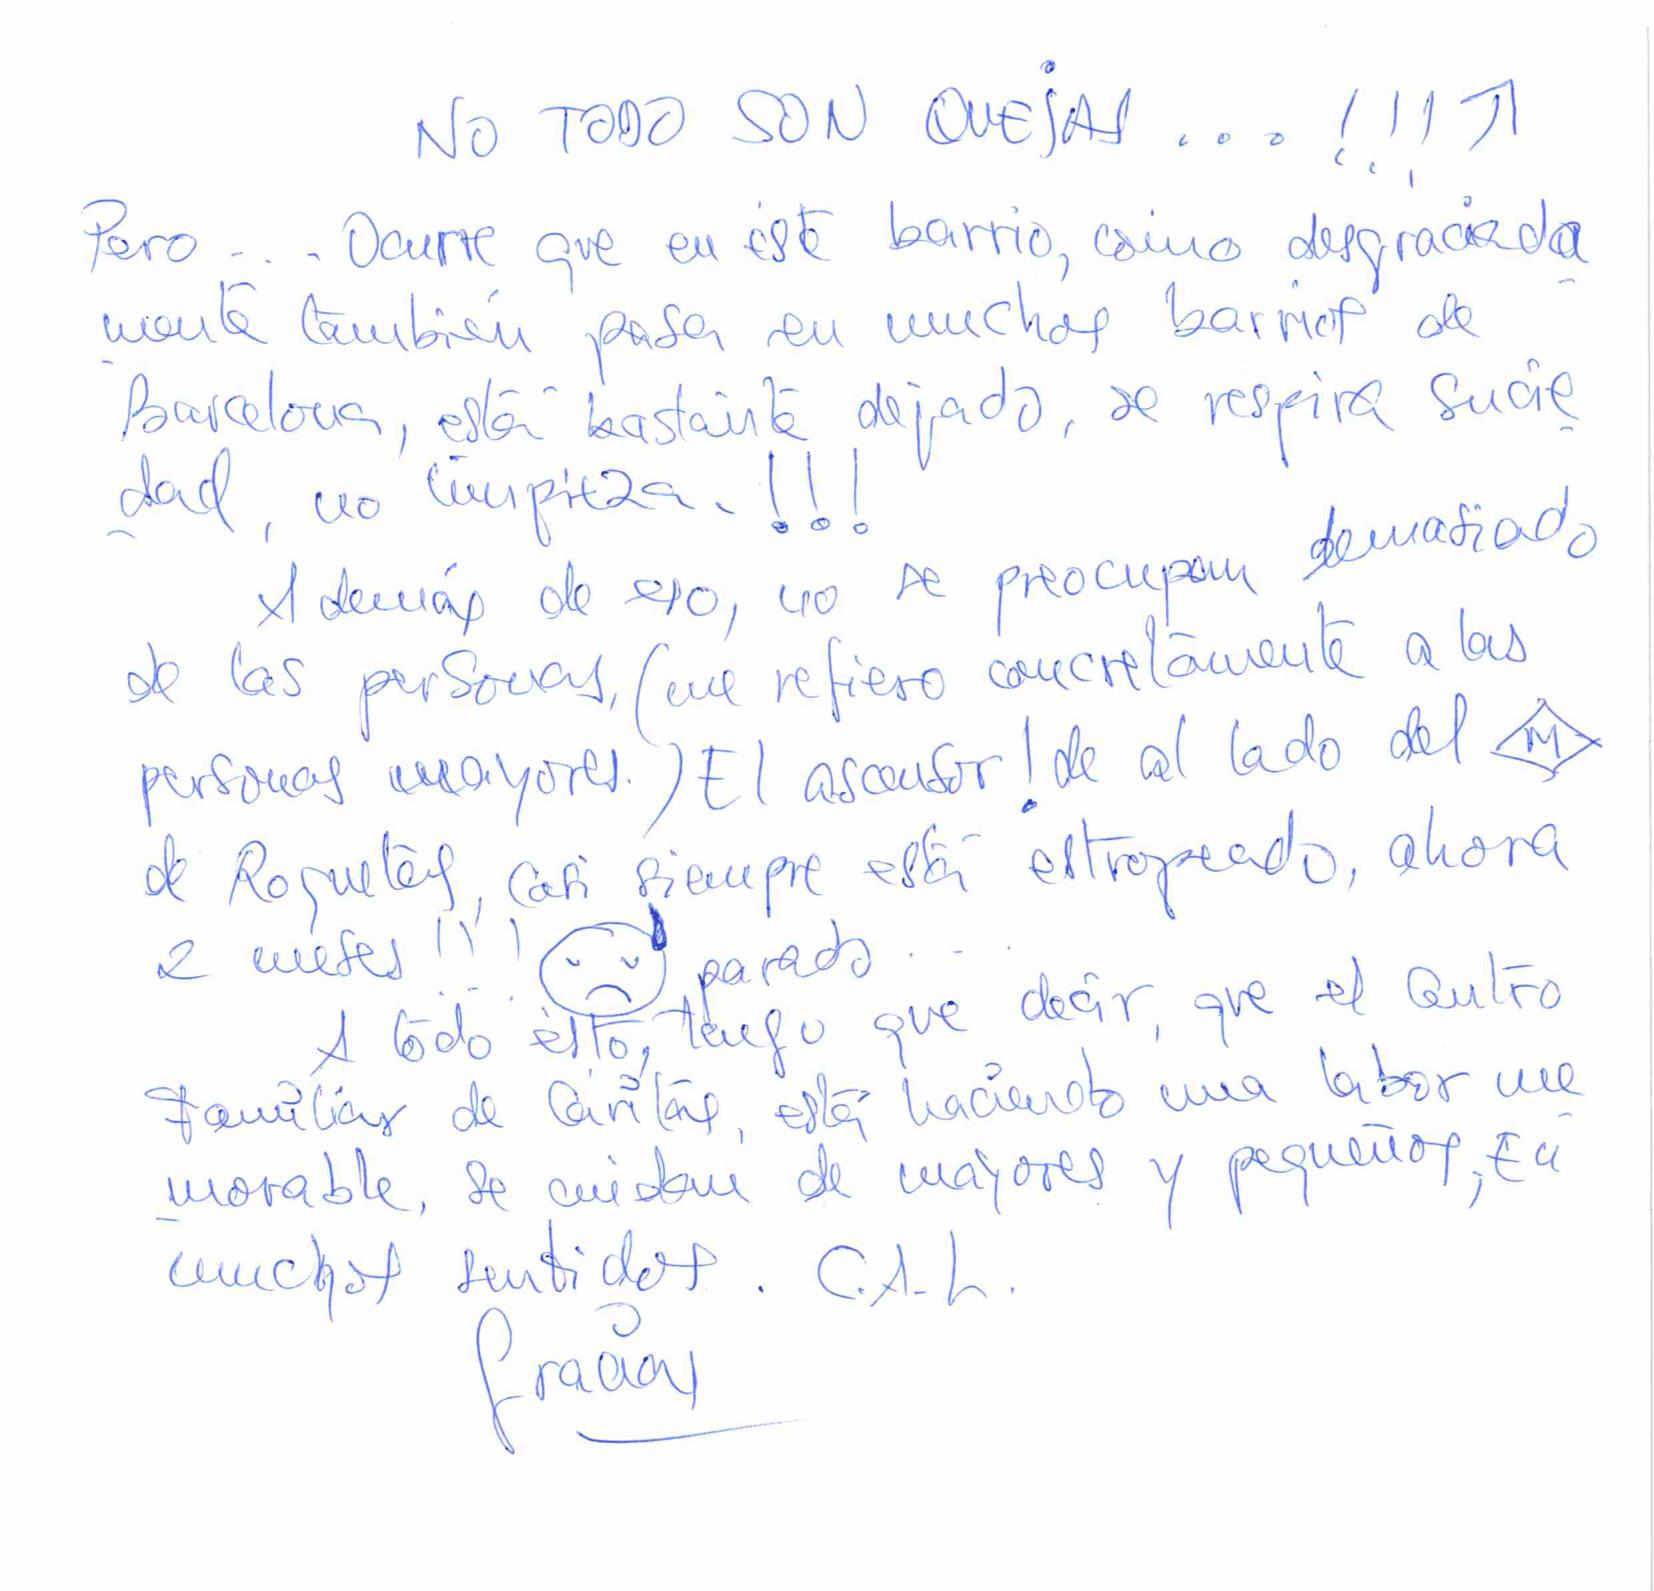 NO TODO SON QUEJAS ... !!!
Pero ... Ocurre que en éste barrio, como desgraciada
mente también pasa en muchos barrios de
Barcelona, está bastante dejado, se respira sucie
dad, no limpieza. !!!
Además de eso, no se preocupan demasiado
de las personas, (me refiero concretamente a las
personas mayores.) El ascensor! de al lado del M
de Roquetas, casi siempre está estropeado, ahora
2 meses !!! parado ...
A todo ésto, tengo que decir, que el Centro
Familiar de Cáritas, está haciendo una labor me
morable, se cuidan de mayores y pequeños, En
muchos sentidos. C.A.L.
Gracias